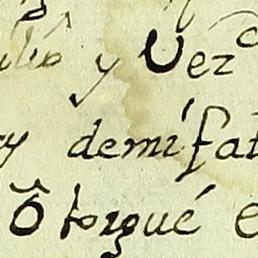 y Vez.º
y demi fat
Otorgué e